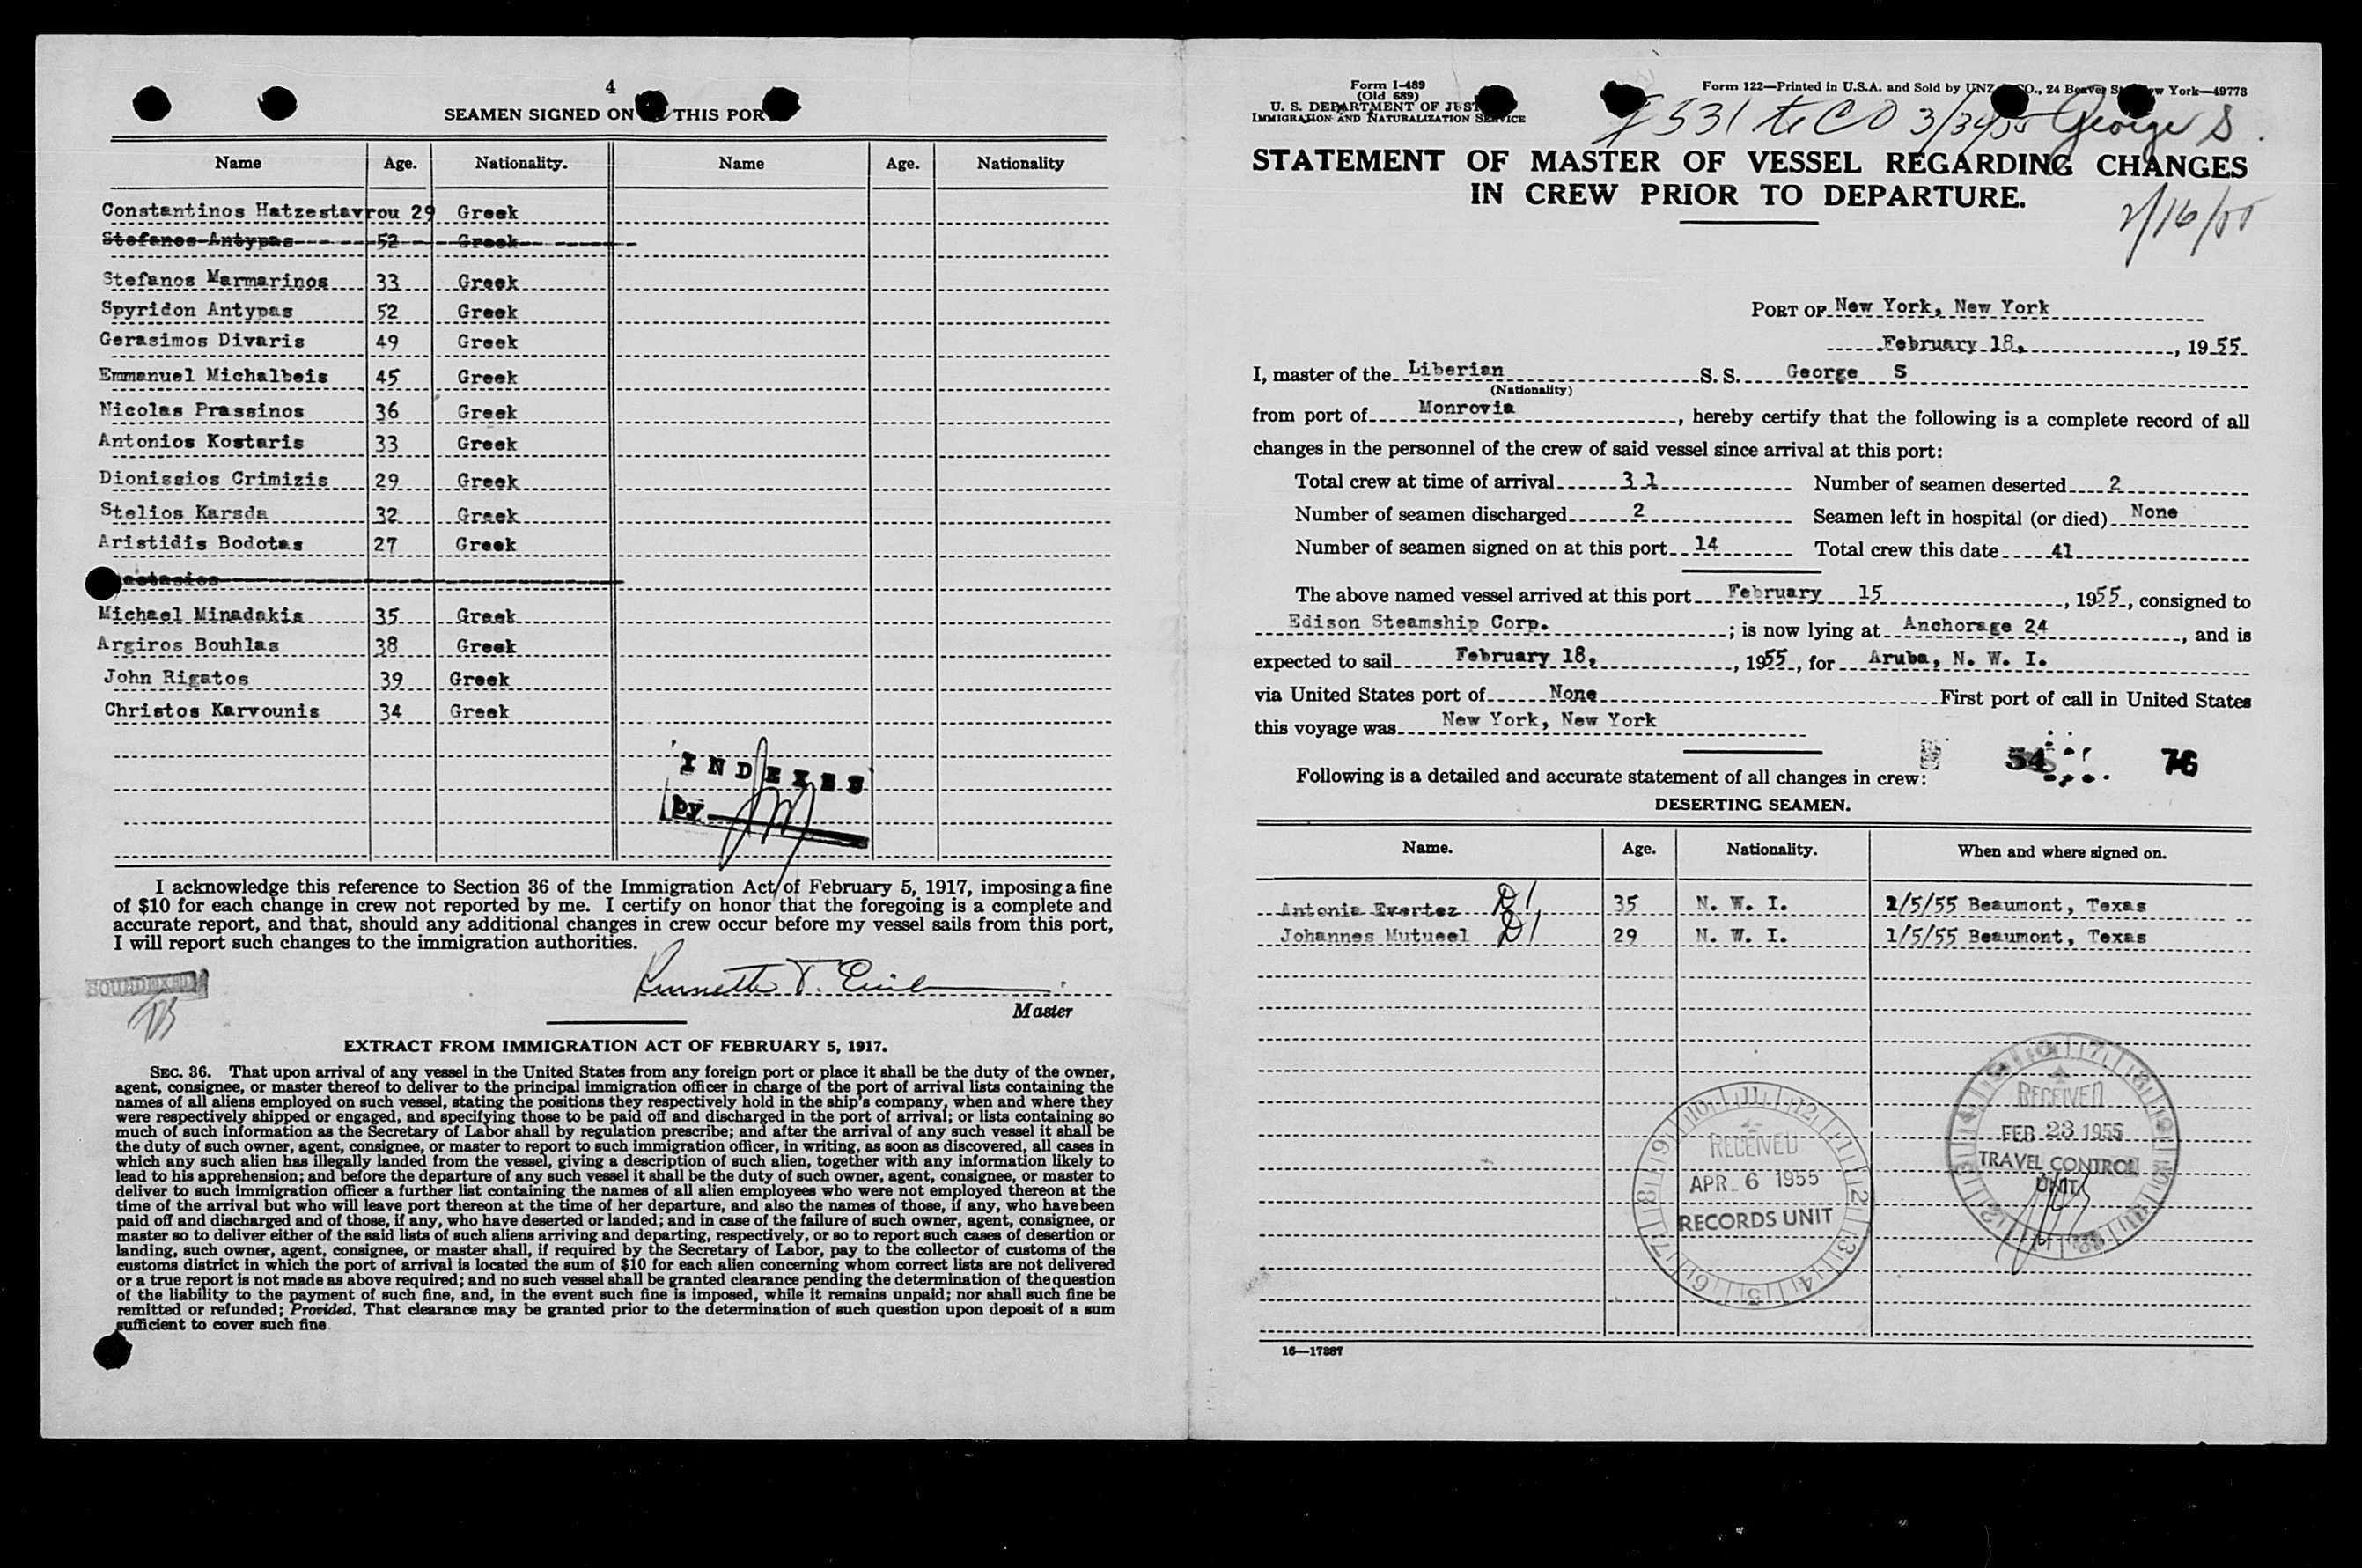 4
SEAMEN SIGNED ON THIS POR
Name Age. Nationality. Name Age. Nationality
Constantinos Hatzestavrou 29 Greek
Stefanos Antypas 52 Greek
Stefanos Marmarinos 33 Greek
Spyridon Antypas 52 Greek
Gerasimos Divaris 49 Greek
Emmanuel Michalbeis 45 Greek
Nicolas Prassinos 36 Greek
Antonios Kostaris 33 Greek
Dionissios Crimizis 29 Greek
Stelios Karsda 32 Greek
Aristidis Bodotas 27 Greek
Michael Minadakis 35 Greek
Argiros Bouhlas 38 Greek
John Rigatos 39 Greek
Christos Karvounis 34 Greek
INDEXES
by
I acknowledge this reference to Section 36 of the Immigration Act of February 5, 1917, imposing a fine
of $10 for each change in crew not reported by me. I certify on honor that the foregoing is a complete and
accurate report, and that, should any additional changes in crew occur before my vessel sails from this port,
I will report such changes to the immigration authorities.
SOUNDEXED
Master
EXTRACT FROM IMMIGRATION ACT OF FEBRUARY 5, 1917.
SEC. 36. That upon arrival of any vessel in the United States from any foreign port or place it shall be the duty of the owner,
agent, consignee, or master thereof to deliver to the principal immigration officer in charge of the port of arrival lists containing the
names of all aliens employed on such vessel, stating the positions they respectively hold in the ship's company, when and where they
were respectively shipped or engaged, and specifying those to be paid off and discharged in the port of arrival; or lists containing so
much of such information as the Secretary of Labor shall by regulation prescribe; and after the arrival of any such vessel it shall be
the duty of such owner, agent, consignee, or master to report to such immigration officer, in writing, as soon as discovered, all cases in
which any such alien has illegally landed from the vessel, giving a description of such alien, together with any information likely to
lead to his apprehension; and before the departure of any such vessel it shall be the duty of such owner, agent, consignee, or master to
deliver to such immigration officer a further list containing the names of all alien employees who were not employed thereon at the
time of the arrival but who will leave port thereon at the time of her departure, and also the names of those, if any, who have been
paid off and discharged and of those, if any, who have deserted or landed; and in case of the failure of such owner, agent, consignee, or
master so to deliver either of the said lists of such aliens arriving and departing, respectively, or so to report such cases of desertion or
landing, such owner, agent, consignee, or master shall, if required by the Secretary of Labor, pay to the collector of customs of the
customs district in which the port of arrival is located the sum of $10 for each alien concerning whom correct lists are not delivered
or a true report is not made as above required; and no such vessel shall be granted clearance pending the determination of the question
of the liability to the payment of such fine, and, in the event such fine is imposed, while it remains unpaid; nor shall such fine be
remitted or refunded; Provided, That clearance may be granted prior to the determination of such question upon deposit of a sum
sufficient to cover such fine
Form I-489
(Old 689)
U. S. DEPARTMENT OF JUST
IMMIGRATION AND NATURALIZATION SERVICE
Form 122—Printed in U.S.A. and Sold by UNZ CO., 24 Beaver St. New York—49773
George S
STATEMENT OF MASTER OF VESSEL REGARDING CHANGES
IN CREW PRIOR TO DEPARTURE.
2/16/55
PORT OF New York, New York
February 18, , 1955
I, master of the Liberian S. S. George S
(Nationality)
from port of Monrovia, hereby certify that the following is a complete record of all
changes in the personnel of the crew of said vessel since arrival at this port:
Total crew at time of arrival 31 Number of seamen deserted 2
Number of seamen discharged 2 Seamen left in hospital (or died) None
Number of seamen signed on at this port 14 Total crew this date 41
The above named vessel arrived at this port February 15, 1955, consigned to
Edison Steamship Corp. ; is now lying at Anchorage 24, and is
expected to sail February 18, , 1955, for Aruba, N. W. I.
via United States port of None First port of call in United States
this voyage was New York, New York
54 76
Following is a detailed and accurate statement of all changes in crew:
DESERTING SEAMEN.
Name. Age. Nationality. When and where signed on.
Antonia Evertez D1 35 N. W. I. 2/5/55 Beaumont, Texas
Johannes Mutueel D1 29 N. W. I. 1/5/55 Beaumont, Texas
RECEIVED
FEB 23 1955
TRAVEL CONTROL
UNIT
RECEIVED
APR 6 1955
RECORDS UNIT
16—17387